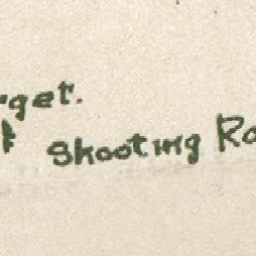 rget.
t Shooting Ra